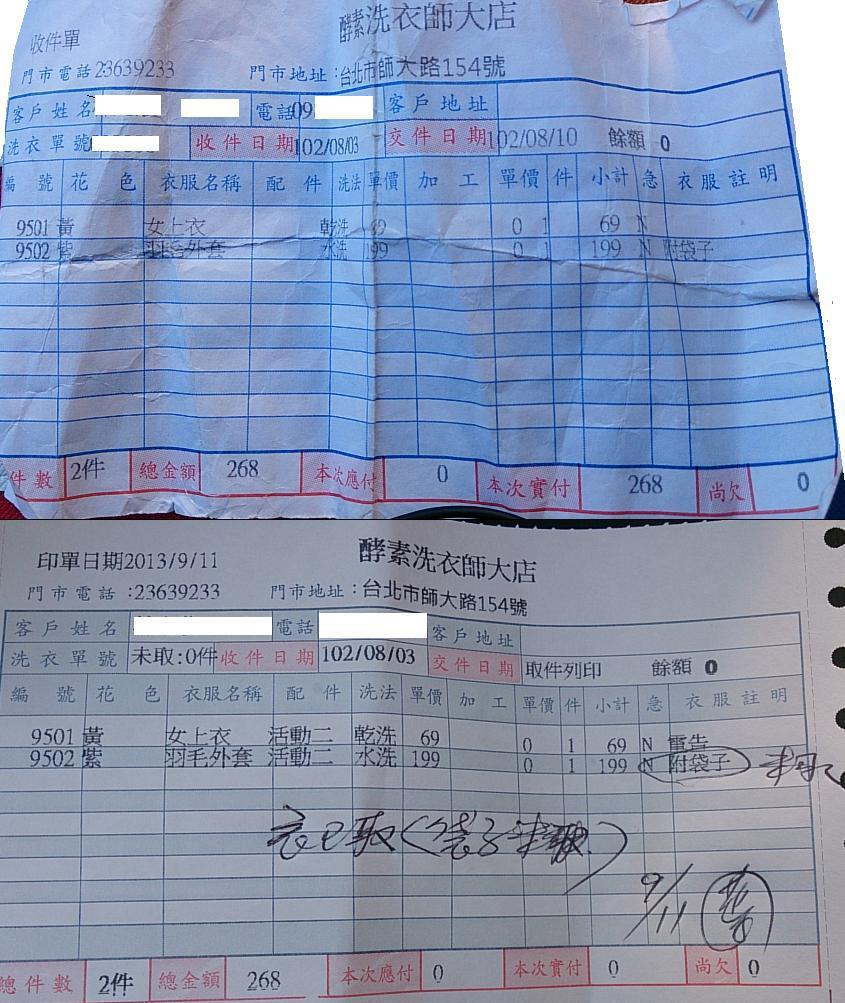 酵素洗衣師大店
收件單
門市電話23639233 門市地址:台北市師大路154號
客戶姓名 電話09 客戶地址
洗衣單號 收件日期102/08/03 交件日期102/08/10 餘額 0
編號 花色 衣服名稱 配件 洗法 單價 加工 單價 件 小計 急 衣服註明
9501 黃 女上衣 乾洗 69 0 1 69 N
9502 紫 羽毛外套 水洗 199 0 1 199 N 附袋子
件數 2件 總金額 268 本次應付 0 本次實付 268 尚欠 0
酵素洗衣師大店
印單日期2013/9/11
門市電話:23639233 門市地址:台北市師大路154號
客戶姓名 電話 客戶地址
洗衣單號 未取:0件 收件日期 102/08/03 交件日期 取件列印 餘額 0
編號 花色 衣服名稱 配件 洗法 單價 加工 單價 件 小計 急 衣服註明
9501 黃 女上衣 活動二 乾洗 69 0 1 69 N 電告
9502 紫 羽毛外套 活動二 水洗 199 0 1 199 N 附袋子 未取
衣已取(袋子未取)
9/11
總件數 2件 總金額 268 本次應付 0 本次實付 0 尚欠 0